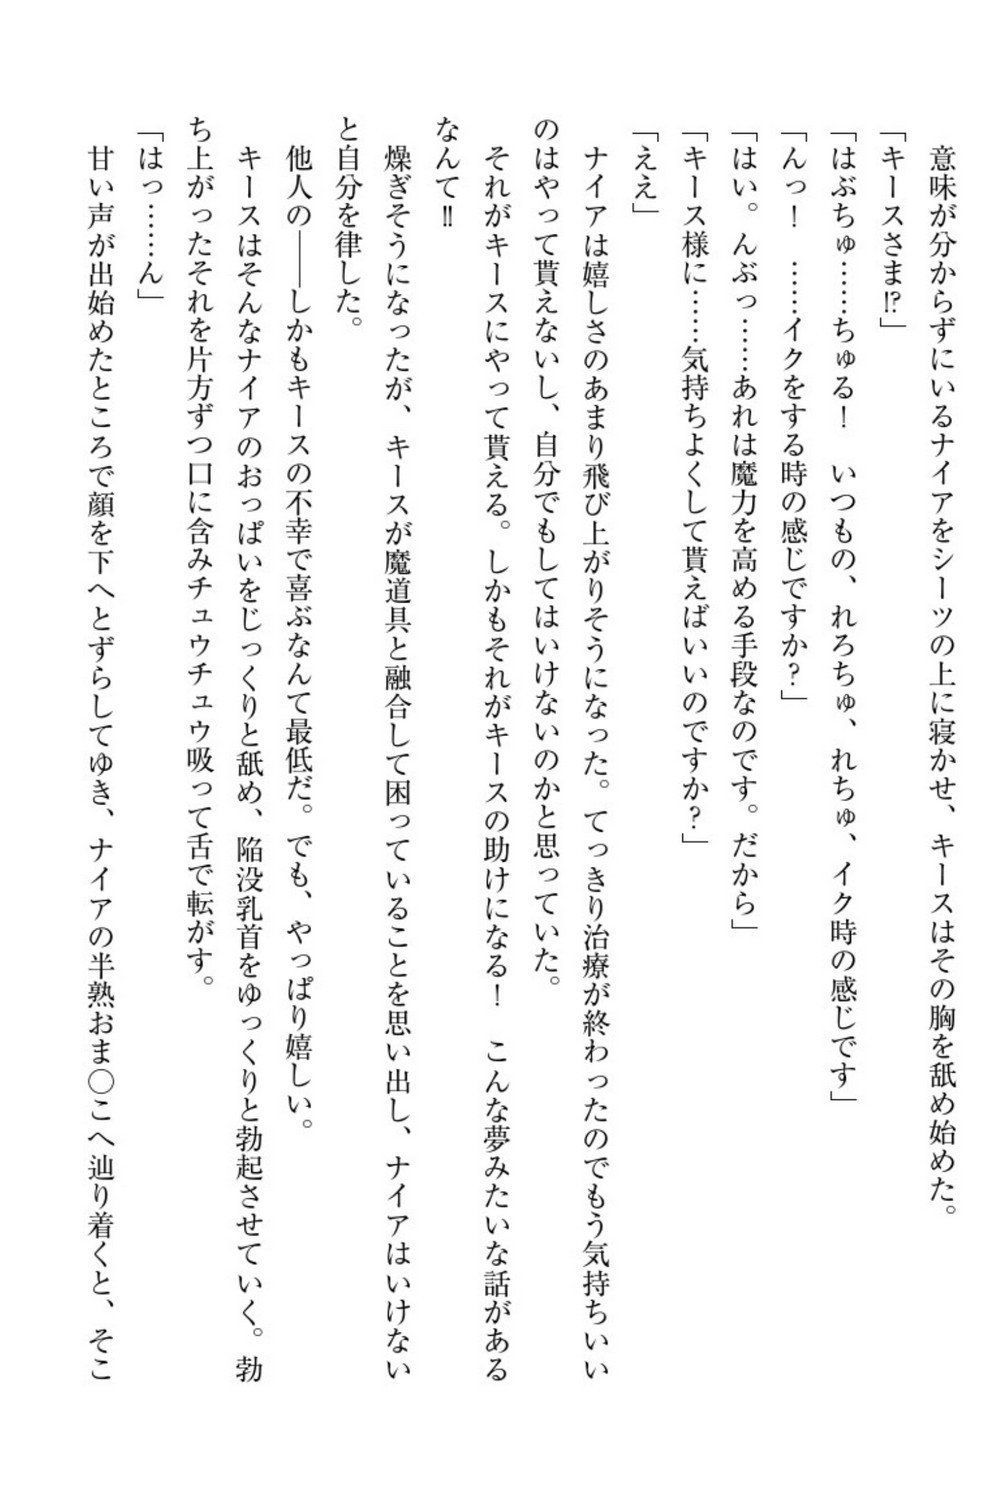 意味が分からずにいるナイアをシーツの上に寝かせ、キースはその胸を舐め始めた。
「キースさま⁉」
「はぶちゅ……ちゅる！　いつもの、れろちゅ、れちゅ、イク時の感じです」
「んっ！　……イクをする時の感じですか？」
「はい。んぶっ……あれは魔力を高める手段なのです。だから」
「キース様に……気持ちよくして貰えばいいのですか？」
「ええ」
ナイアは嬉しさのあまり飛び上がりそうになった。てっきり治療が終わったのでもう気持ちいい
のはやって貰えないし、自分でもしてはいけないのかと思っていた。
それがキースにやって貰える。しかもそれがキースの助けになる！　こんな夢みたいな話がある
なんて‼
燥ぎそうになったが、キースが魔道具と融合して困っていることを思い出し、ナイアはいけない
と自分を律した。
他人の――しかもキースの不幸で喜ぶなんて最低だ。でも、やっぱり嬉しい。
キースはそんなナイアのおっぱいをじっくりと舐め、陥没乳首をゆっくりと勃起させていく。勃
ち上がったそれを片方ずつ口に含みチュウチュウ吸って舌で転がす。
「はっ……ん」
甘い声が出始めたところで顔を下へとずらしてゆき、ナイアの半熟おま〇こへ辿り着くと、そこ